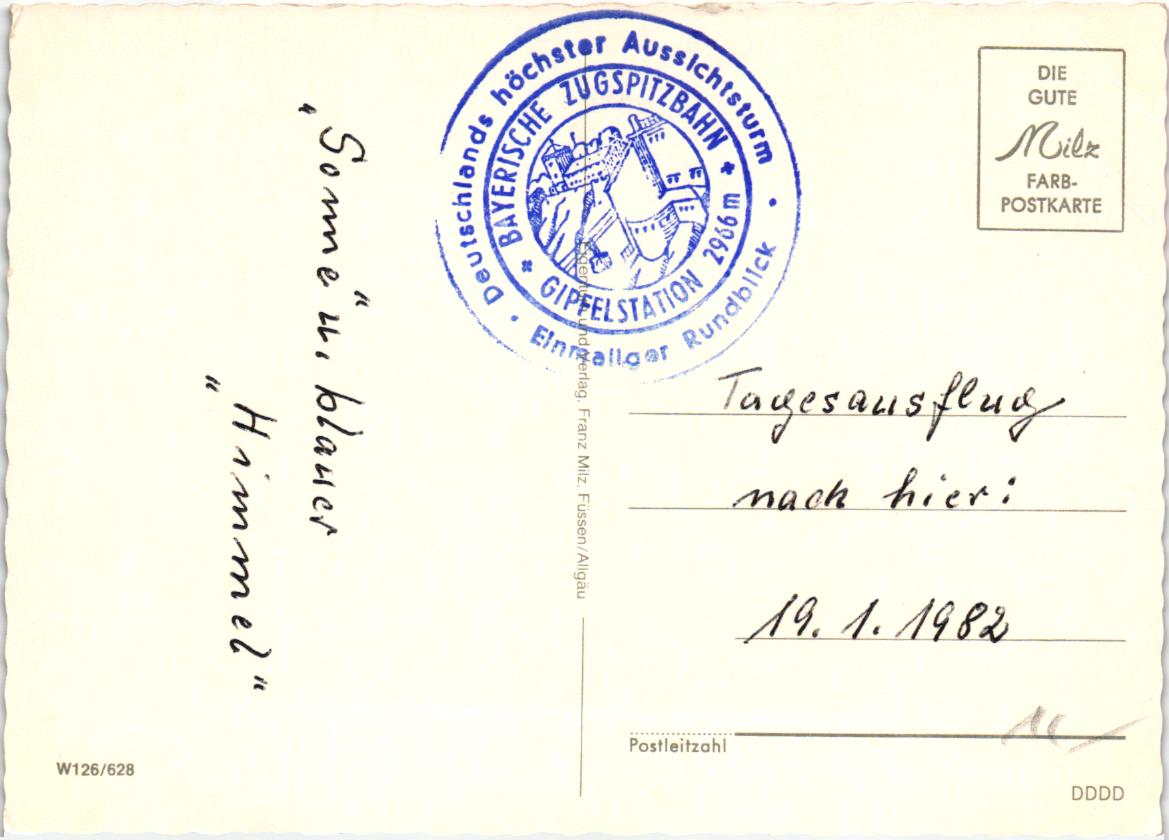 „Sonne“ u. blauer
„Himmel“
W126/628
Deutschlands höchster Aussichtsturm
Einmaliger Rundblick
BAYERISCHE ZUGSPITZBAHN
GIPFELSTATION 2966 m
Eigentum und Verlag, Franz Milz, Füssen/Allgäu
DIE
GUTE
Milz
FARB-
POSTKARTE
Tagesausflug
nach hier:
19. 1. 1982
Postleitzahl
DDDD